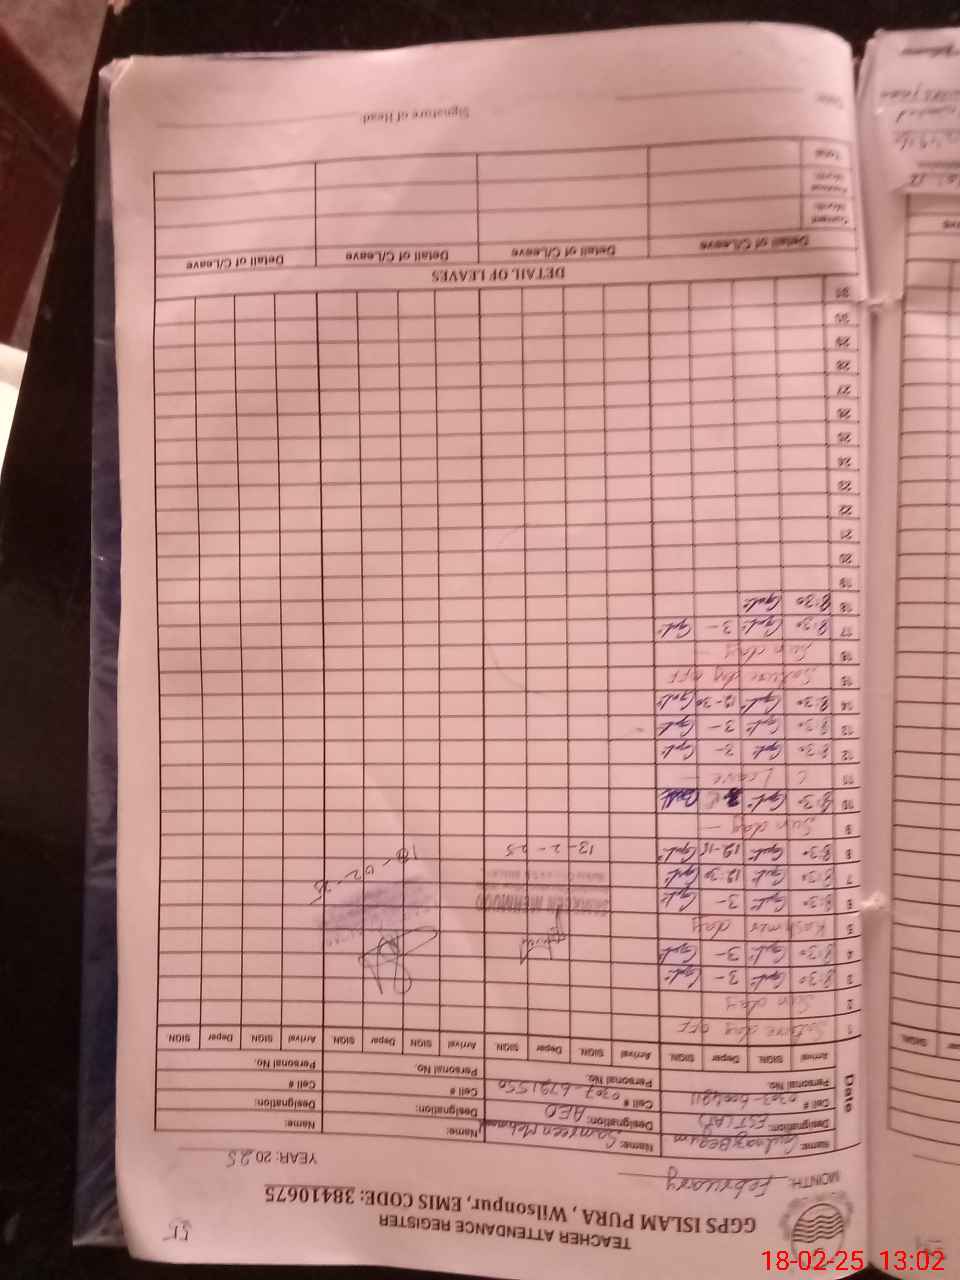 55
TEACHER ATTENDANCE REGISTER
GGPS ISLAM PURA , Wilsonpur, EMIS CODE: 38410675
MONTH: February YEAR: 2025
Date Name: Gulnaz Begum Name: Samreen Mehmood Name: Name:
Designation: EST(Arts) Designation: AEO Designation: Designation:
Cell # 0303-6004811 Cell # 0307-6791550 Cell # Cell #
Personal No. Personal No. Personal No. Personal No.
Arrival SIGN. Depar SIGN. Arrival SIGN. Depar SIGN. Arrival SIGN. Depar SIGN. Arrival SIGN. Depar SIGN.
1 Satureday off
2 Sun day
3 8:30 Gul 3- Gul
4 8:30 Gul 3- Gul
5 Kashmir day
6 8:30 Gul 3- Gul SAMREEN MEHMOOD
7 8:30 Gul 12:30 Gul
8 8:30 Gul 12-15 Gul 13-2-25 18-02-25
9 Sun day —
10 8:30 Gul
11 C Leave —
12 8:30 Gul 3- Gul
13 8:30 Gul 3- Gul
14 8:30 Gul 12-30 Gul
15 Saturday off
16 Sun day —
17 8:30 Gul 3- Gul
18 8:30 Gul
19
20
21
22
23
24
25
26
27
28
29
30
31
DETAIL OF LEAVES
Detail of C/Leave Detail of C/Leave Detail of C/Leave Detail of C/Leave
Current Month
Previous Month
Total
Date: Signature of Head:
18-02-25 13:02